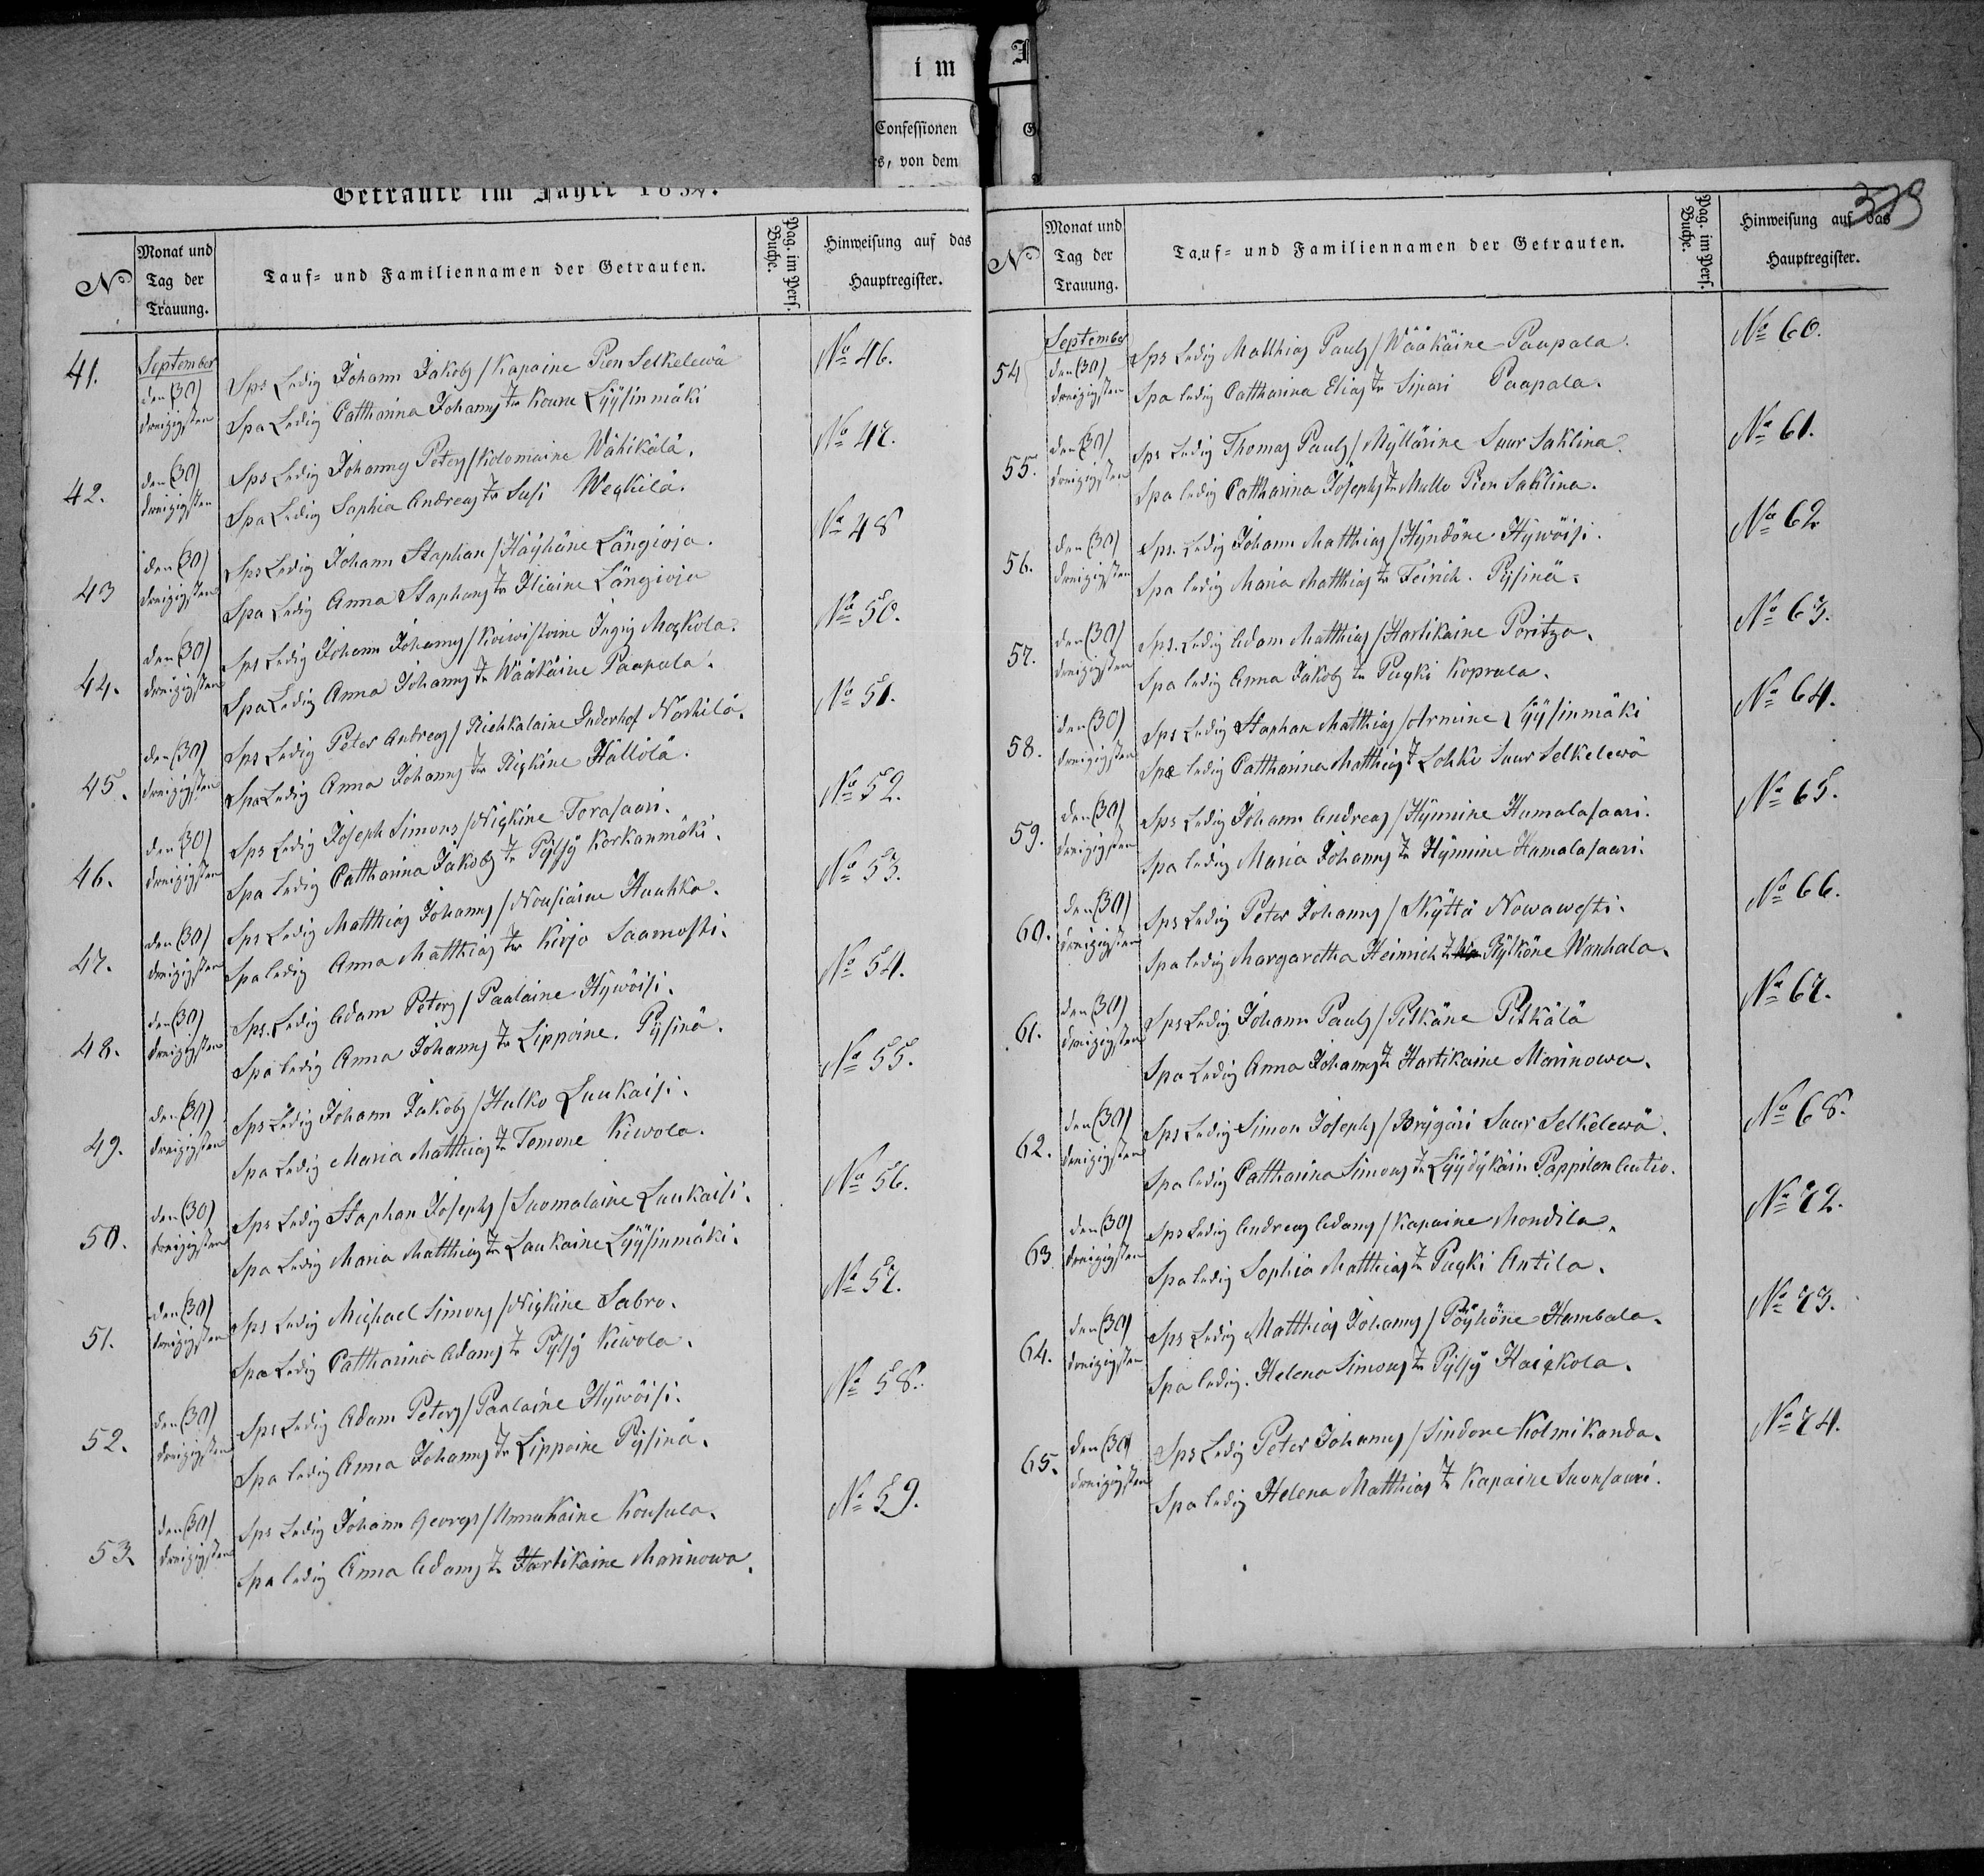 im
Confessionen
s, von dem
Getraute im Jahre 1834.
No
Monat und Tag der Trauung.
Tauf- und Familiennamen der Getrauten.
Pag. im Perf. Buche.
Hinweisung auf das Hauptregister.
41. September den (30) dreizigsten
Sps Ledig Johann Jakobs / Kapaine Pien Selkelewä
No 46.
Spa Ledig Catharina Johanns Tr Koune Lÿÿsinmäki
42. den (30) dreizigsten
Sps Ledig Johannes Peters / Kolomaine Wähikälä.
No 47.
Spa Ledig Sophia Andreas Tr Susi Weskilä.
43 den (30) dreizigsten
Sps Ledig Johann Staphan / Häÿhäne Längioja.
No 48
Spa Ledig Anna Staphans Tr Iliaine Längioja
44. den (30) dreizigsten
Sps Ledig Johann Johanns / Koiwistoine Ingris Moskola.
No 50.
Spa Ledig Anna Johanns Tr Wääkäine Paapala.
45. den (30) dreizigsten
Sps Ledig Peter Andreas / Riehkalaine Inderhof Noskilä.
No 51.
Spa Ledig Anna Johanns Tr Riskine Hällölä.
46. den (30) dreizigsten
Sps Ledig Joseph Simons / Niskine Torasaari.
No 52.
Spa Ledig Catharina Jakobs Tr Pÿlsÿ Korkanmäki.
47. den (30) dreizigsten
Sps Ledig Matthias Johanns / Nousiaine Hauhko.
No 53.
Spa ledig Anna Matthias Tr Kirjo Saamosti.
48. den (30) dreizigsten
Sps. Ledig Adam Peters / Paalaine Hÿwöisi.
No 54.
Spa ledig Anna Johanns Tr Lippoine. Pÿsinä.
49. den (30) dreizigsten
Sps Ledig Johann Jakobs / Hulko Laukaisi.
No 55.
Spa Ledig Maria Matthias Tr Tomone Kiwola.
50. den (30) dreizigsten
Sps Ledig Staphan Josephs / Suomalaine Laukaisi.
No 56.
Spa Ledig Maria Matthias Tr Laukaine Lÿÿsinmäki.
51. den (30) dreizigsten
Sps Ledig Michael Simons / Niskine Sabro.
No 57.
Spa Ledig Catharina Adams Tr Pÿlsÿ Kiwola.
52. den (30) dreizigsten
Sps Ledig Adam Peters / Paalaine Hÿwöisi.
No 58.
Spa ledig Anna Johanns Tr Lippoine Pÿsinä.
53. den (30) dreizigsten
Sps Ledig Johann Georgs / Annukaine Kousula.
No 59.
Spa ledig Anna Adams Tr Hartikaine Marinowa.
No
Monat und Tag der Trauung.
Tauf- und Familiennamen der Getrauten.
Pag. im Perf. Buche.
Hinweisung auf das Hauptregister.
54 September den (30) dreizigsten
Sps Ledig Matthias Pauls / Wääkäine Paapala.
No 60.
Spa ledig Catharina Elias Tr Sipari Paapala.
55. den (30) dreizigsten
Sps Ledig Thomas Pauls / Mÿllärine Suur Saklina.
No 61.
Spa ledig Catharina Josephs Tr Mullo Pien Saklina.
56. den (30) dreizigsten
Sps. Ledig Johann Matthias / Hÿndöne Hÿwöisi.
No 62
Spa ledig Maria Matthias Tr Teirich. Pÿsinä.
57. den (30) dreizigsten
Sps. Ledig Adam Matthias / Hartikaine Poritza.
No 63.
Spa ledig Anna Jakobs Tr Puski Koprala.
58. den (30) dreizigsten
Sps Ledig Staphan Matthias / Armine Lÿÿsinmäki
No 64.
Spa ledig Catharina Matthias T Lohko Suur Selkelewä
59. den (30) dreizigsten
Sps Ledig Johann Andreas / Hÿnnine Hamalasaari.
No 65.
Spa ledig Maria Johanns Tr Hÿnnine Hamalasaari.
60. den (30) dreizigsten
Sps Ledig Peter Johanns / Skÿttä Nowawesti.
No 66.
Spa ledig Margaretha Heinrich T Pÿlköne Wanhala.
61. den (30) dreizigsten
Sps Ledig Johann Pauls / Pitkäne Pitkälä
No 67.
Spa Ledig Anna Johanns Tr Hartikaine Marinowa.
62. den (30) dreizigsten
Sps Ledig Simon Josephs / Brÿgäri Suur Selkelewä.
No 68.
Spa ledig Catharina Simons Tr Lÿÿdikäin Pappilan Autio.
63 den (30) dreizigsten
Sps Ledig Andreas Adams / Kapaine Mondila.
No 72.
Spa ledig Sophia Matthias Tr Puski Antila.
64. den (30) dreizigsten
Sps Ledig Matthias Johanns / Pöÿhöne Hambala.
No 73.
Spa ledig. Helena Simons Tr Pÿlsÿ Haiskola.
65. den (30) dreizigsten
Sps Ledig Peter Johanns / Sindone Kolmikanda.
No 74.
Spa ledig Helena Matthias T Kapaine Suonsaari.